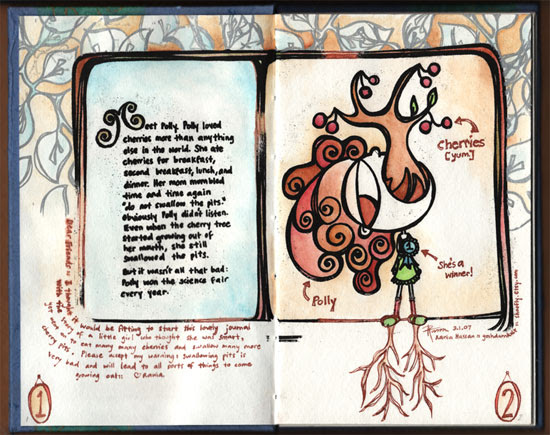 Meet Polly. Polly loved
cherries more than anything
else in the world. She ate
cherries for breakfast,
second breakfast, lunch, and
dinner. Her mom mumbled
time and time again
"do not swallow the pits."
Obviously Polly didn't listen.
Even when the cherry tree
started growing out of
her mouth, she still
swallowed the pits.
But it wasn't all that bad:
Polly won the science fair
every year.
Dear Friends :: I thought it would be fitting to start this lovely journal
With the story of a little girl who thought she was smart,
yet on to eat many many cherries and swallow many more
cherry pits. Please accept my warning: swallowing pits is
very bad and will lead to all sorts of things to come
growing out:: ♡Rania.
1
Cherries
[yum]
She's a
winner!
Polly
Rania 3.1.07
Rania Hassan :: goshdarnknit :: shoofly.etsy.com
2